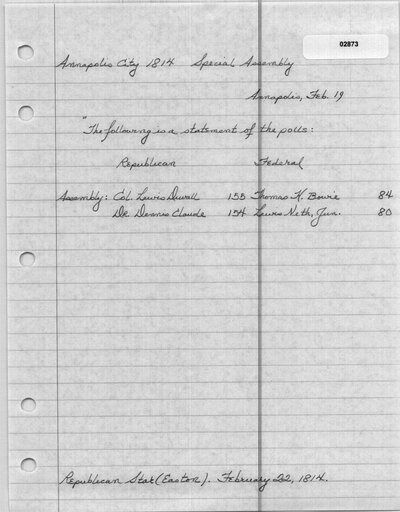 02873
Annapolis City 1814 Special Assembly
Annapolis, Feb. 19
"The following is a statement of the polls:
Republican Federal
Assembly: Col. Lewis Duvall 155 Thomas H. Bowie 84
Dr. Dennis Claude 154 Lewis Neth, Jun. 80
Republican Star (Easton). February 22, 1814.